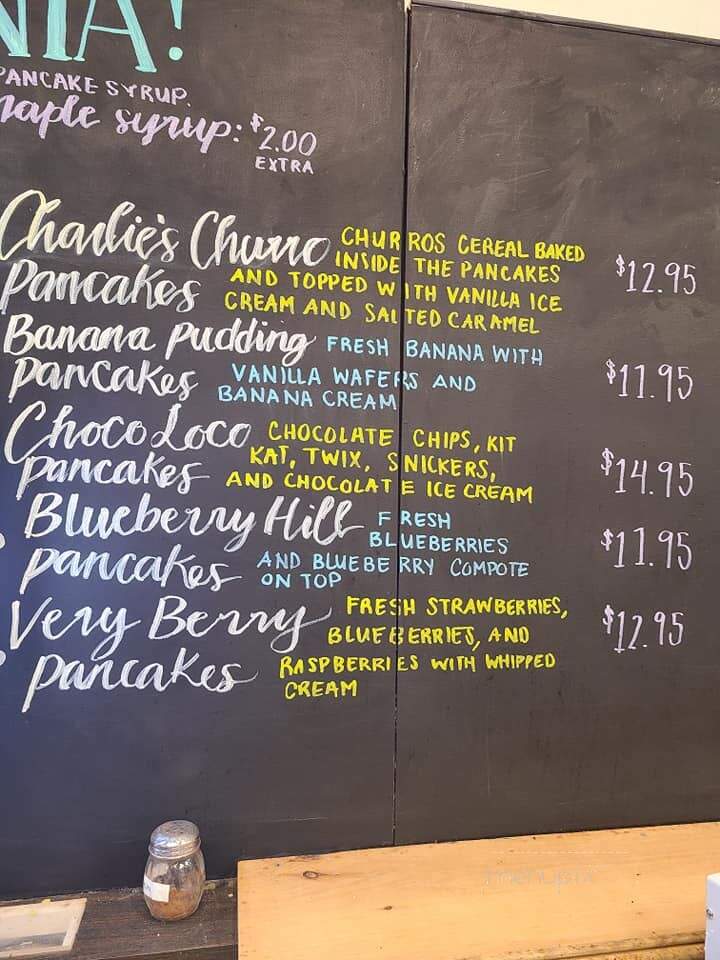 PANCAKE SYRUP.
maple syrup: $2.00
EXTRA
Charlie's Churro
Pancakes
CHURROS CEREAL BAKED
INSIDE THE PANCAKES
AND TOPPED WITH VANILLA ICE
CREAM AND SALTED CARAMEL
$12.95
Banana Pudding
Pancakes
FRESH BANANA WITH
VANILLA WAFERS AND
BANANA CREAM
$11.95
Choco Loco
Pancakes
CHOCOLATE CHIPS, KIT
KAT, TWIX, SNICKERS,
AND CHOCOLATE ICE CREAM
$14.95
Blueberry Hill
Pancakes
FRESH
BLUEBERRIES
AND BLUEBERRY COMPOTE
ON TOP
$11.95
Very Berry
Pancakes
FRESH STRAWBERRIES,
BLUEBERRIES, AND
RASPBERRIES WITH WHIPPED
CREAM
$12.95
menupix